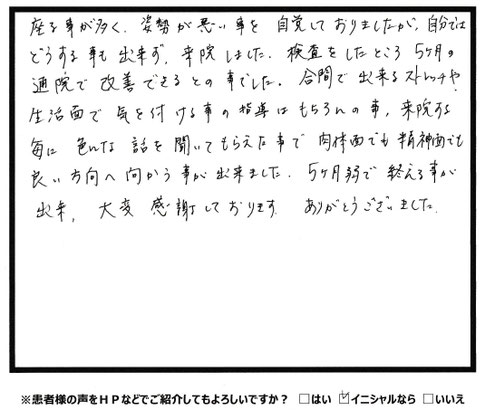 座る事が多く、姿勢が悪い事を 自覚しておりましたが、自分では
どうする事も出来ず、来院しました。検査をしたところ 5ヶ月の
通院で 改善できるとの事でした。合間で出来るストレッチや
生活面で 気を付ける事の指導はもちろんの事、来院する
毎に 色んな 話を聞いてもらえた事で 肉体面でも精神面でも
良い方向へ向かう事が出来ました。5ヶ月弱で 終える事が
出来、大変 感謝しております。ありがとうございました。
※患者様の声をHPなどでご紹介してもよろしいですか? □はい ☑イニシャルなら □いいえ